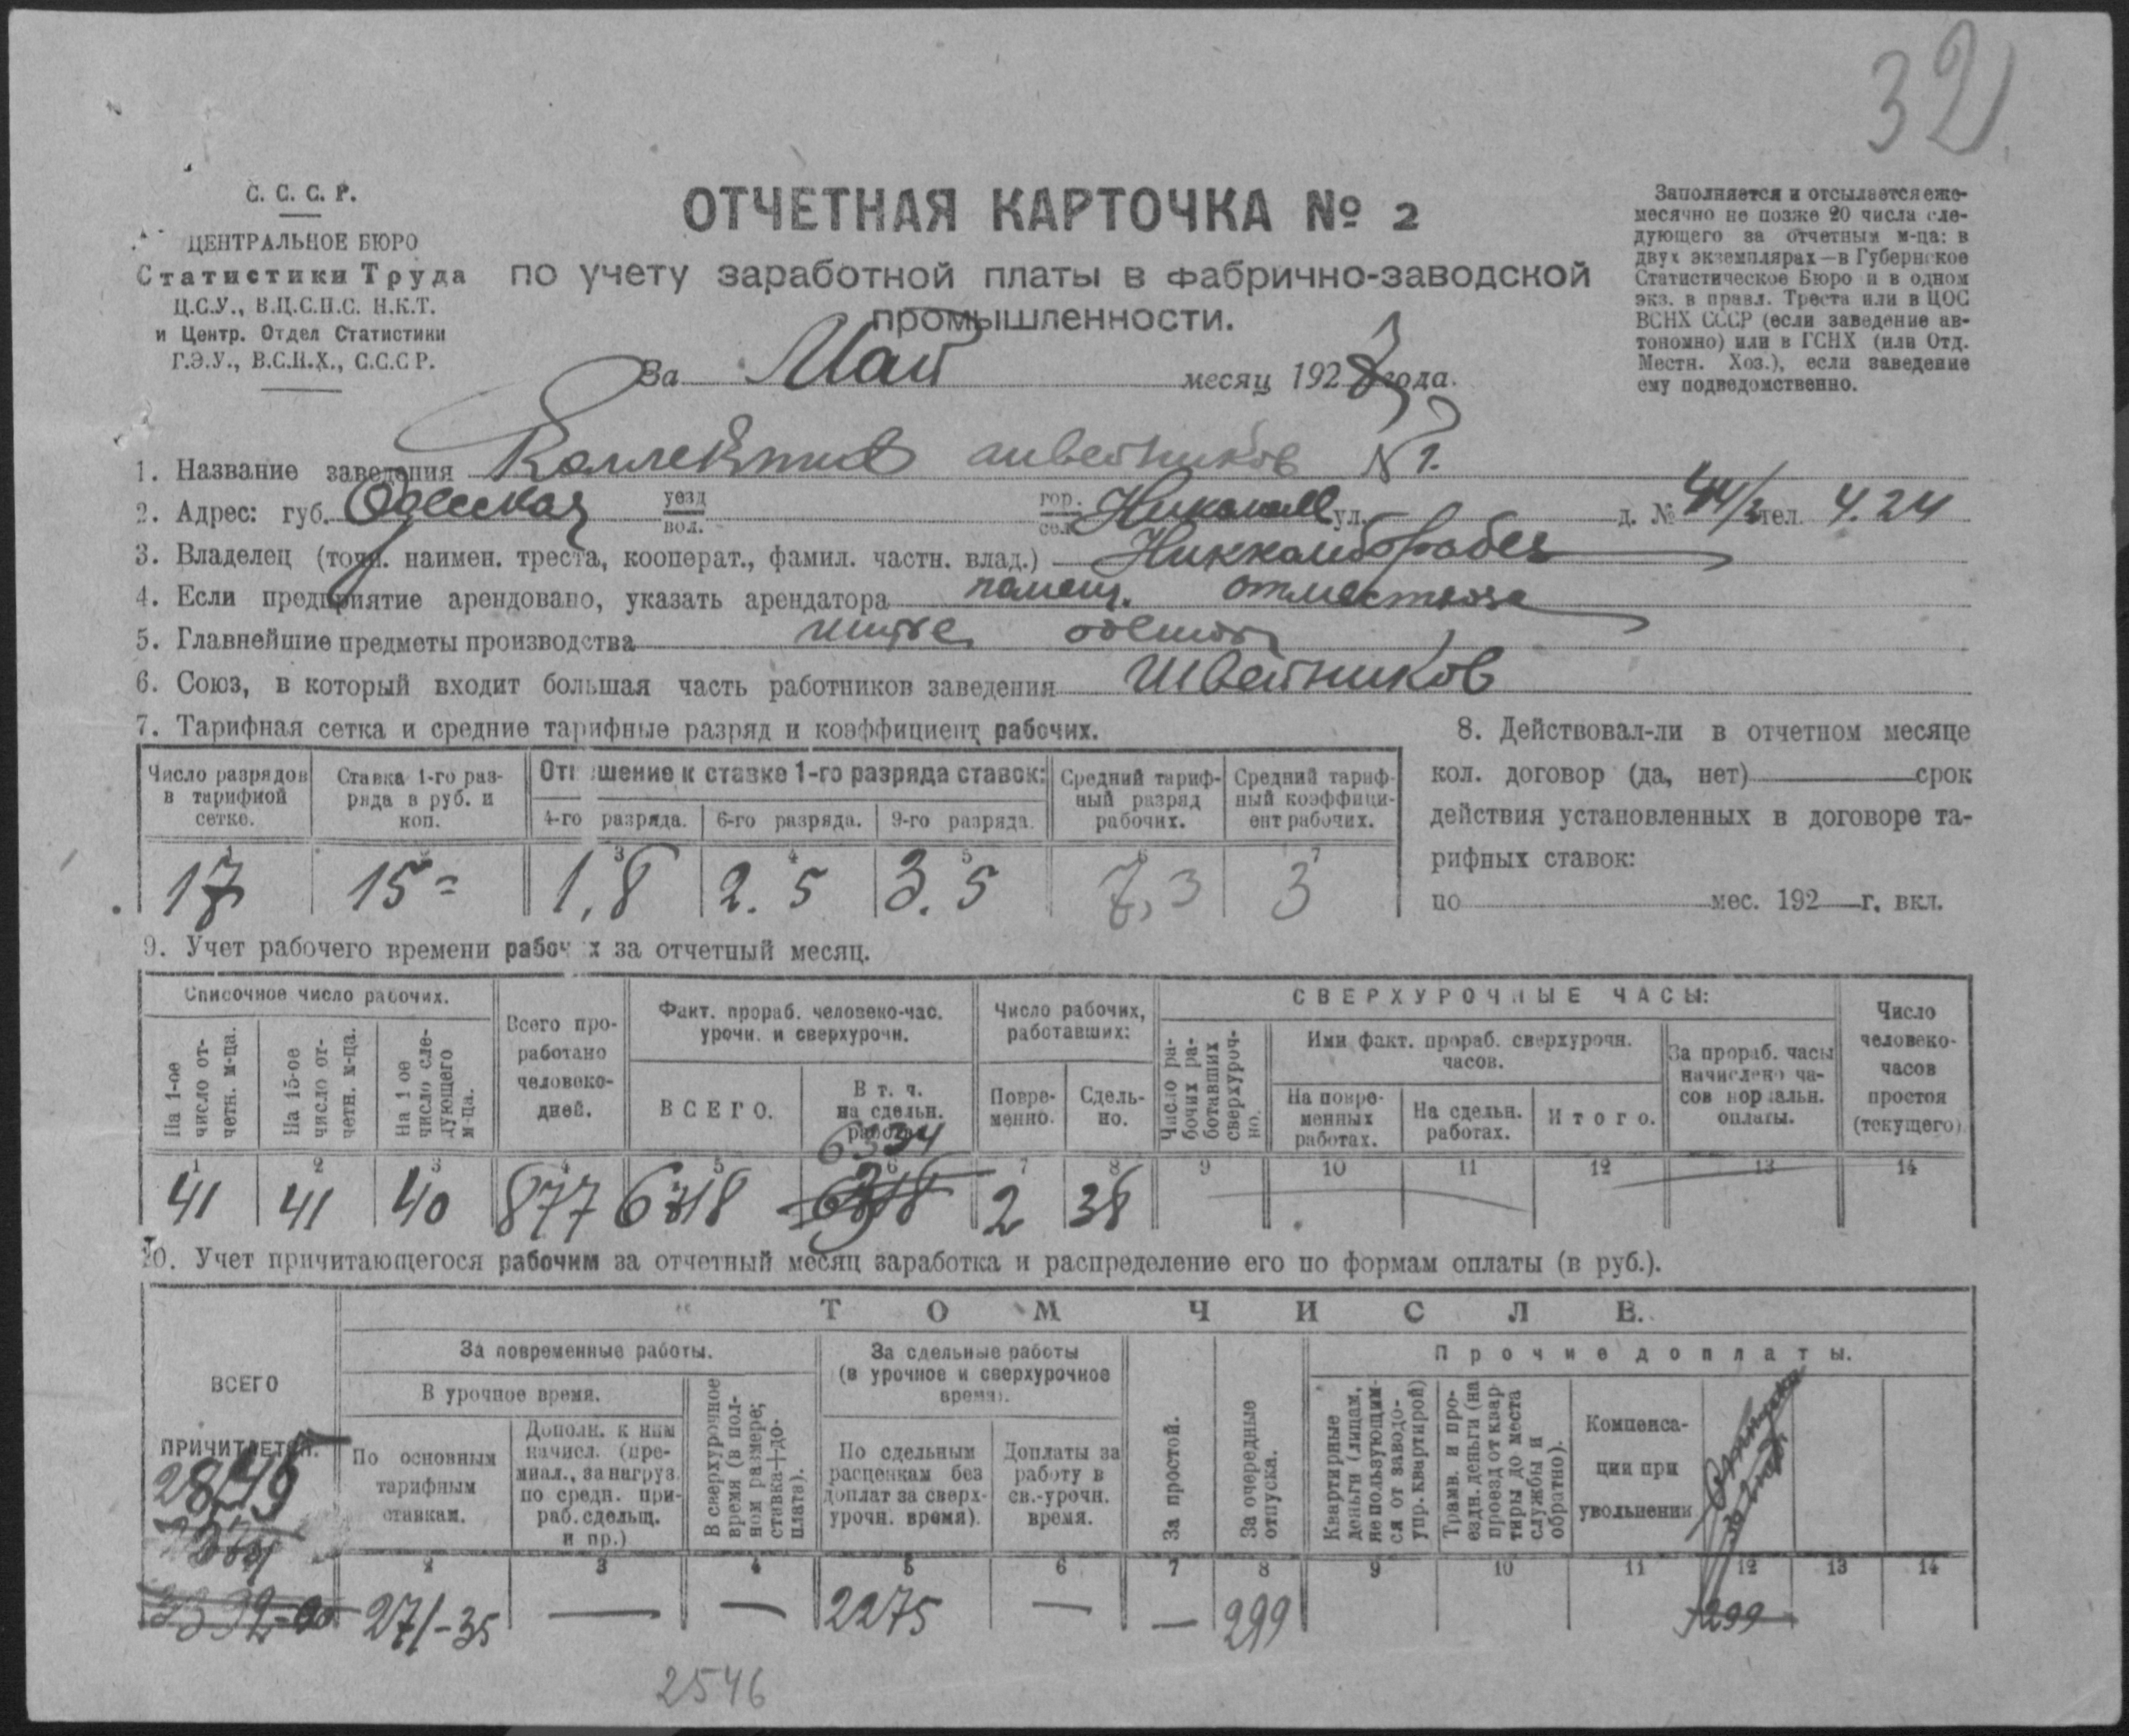 32
С. С. С. Р.
ЦЕНТРАЛЬНОЕ БЮРО
Статистики Труда
Ц.С.У., В.Ц.С.П.С. Н.К.Т.
и Центр. Отдел Статистики
Г.Э.У., В.С.Н.Х., С.С.С Р.
ОТЧЕТНАЯ КАРТОЧКА № 2
по учету заработной платы в фабрично-заводской
промышленности.
За Май месяц 192 года.
Заполняется и отсылается еже-
месячно не позже 20 числа сле-
дующего за отчетным м-ца: в
двух экземплярах—в Губернское
Статистическое Бюро и в одном
экз. в правл. Треста или в ЦОС
ВСНХ СССР (если заведение ав-
тономно) или в ГСНХ (или Отд.
Местн. Хоз.), если заведение
ему подведомственно.
1. Название заведения Коллектив швейников № 1.
2. Адрес: губ. Одесская уезд вол. гор. сел. Николаев ул. д. № 44/2 тел. 4.24
3. Владелец (точн. наимен. треста, кооперат., фамил. частн. влад.)
4. Если предприятие арендовано, указать арендатора помещ. отместхоза
5. Главнейшие предметы производства шитье одежды
6. Союз, в который входит большая часть работников заведения Швейников
7. Тарифная сетка и средние тарифные разряд и коэффициент рабочих.
Число разрядов в тарифной сетке.
Ставка 1-го раз-ряда в руб. и коп.
Отношение к ставке 1-го разряда ставок:
4-го разряда.
6-го разряда.
9-го разряда.
Средний тариф-ный разряд рабочих.
Средний тариф-ный коэффици-ент рабочих.
1 2 3 4 5 6 7
17 15= 1,8 2.5 3.5 7,3 3
8. Действовал-ли в отчетном месяце
кол. договор (да, нет) срок
действия установленных в договоре та-
рифных ставок:
по мес. 192 г. вкл.
9. Учет рабочего времени рабоч х за отчетный месяц.
Списочное число рабочих.
На 1-ое число от-четн. м-ца.
На 15-ое число от-четн. м-ца.
На 1 ое число сле-дующего м-ца.
Всего про-работано человеко-дней.
Факт. прораб. человеко-час. урочн. и сверхурочн.
ВСЕГО.
В т. ч. на сдельн. работах
Число рабочих, работавших:
Повре-менно.
Сдель-но.
СВЕРХУРОЧНЫЕ ЧАСЫ:
Число ра-бочих ра-ботавших сверхуроч-но.
Ими факт. прораб. сверхурочн. часов.
На повре-менных работах.
На сдельн. работах.
Итого.
За прораб. часы начислено ча-сов нормальн. оплаты.
Число человеко-часов простоя (текущего)
6334
1 2 3 4 5 6 7 8 9 10 11 12 13 14
41 41 40 877 6718 2 38
10. Учет причитающегося рабочим за отчетный месяц заработка и распределение его по формам оплаты (в руб.).
ВСЕГО ПРИЧИТАЕТСЯ.
ТОМ ЧИСЛЕ.
За повременные работы.
В урочное время.
По основным тарифным ставкам.
Дополн. к ним начисл. (пре-миал., за нагруз. по средн. при-раб. сдельщ. и пр.)
В сверхурочное время (в пол-ном размере; ставка+до-плата).
За сдельные работы (в урочное и сверхурочное время).
По сдельным расценкам без доплат за сверх-урочн. время).
Доплаты за работу в св.-урочн. время.
За простой.
За очередные отпуска.
Прочие доплаты.
Квартирные деньги (лицам, не пользующим-ся от заводо-упр. квартирой)
Трамв. и про-ездн. деньги (на проезд от квар-тиры до места службы и обратно).
Компенса-ции при увольнении
2845
2 3 4 5 6 7 8 9 10 11 12 13 14
271-35 — — 2275 — — 299 299
2546